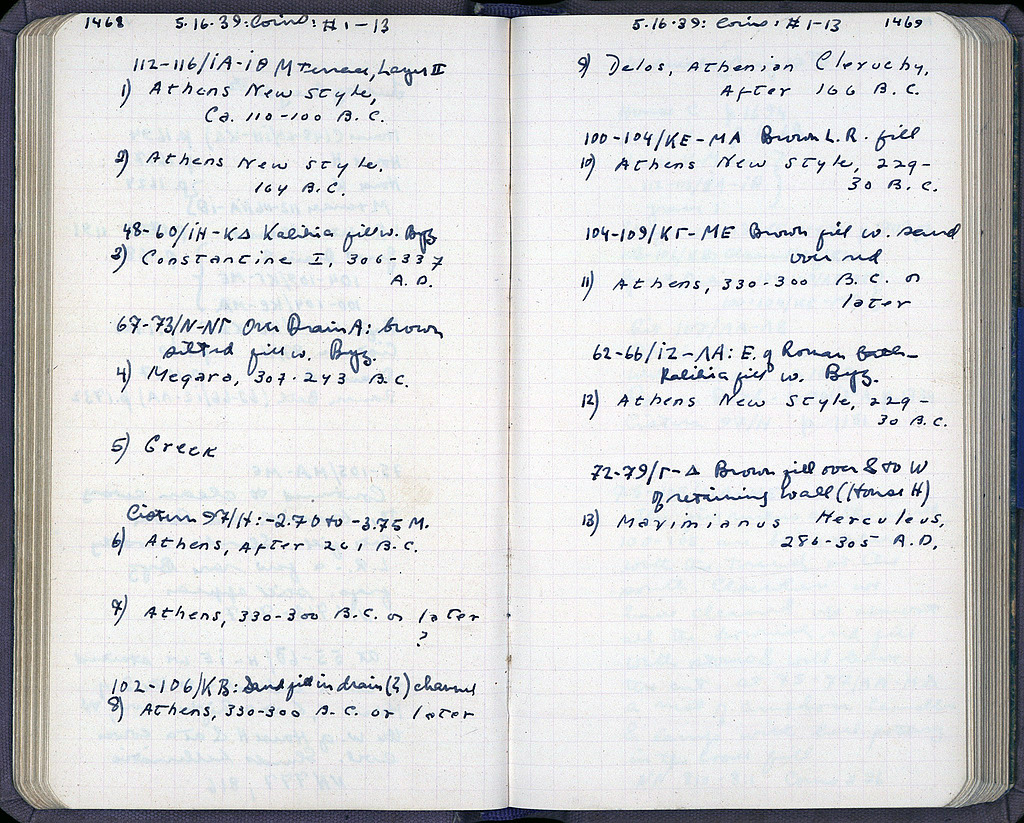 1468 5.16.39: Coins: #1-13
112-116/ΙΑ-ΙΘ M terrace, Layer II
1) Athens New Style,
Ca. 110-100 B.C.
2) Athens New Style.
164 B.C.
48-60/ΙΗ-ΚΔ Kalihia fill w. Byz
3) Constantine I, 306-337
A.D.
67-73/Ν-ΝΓ Over Drain A: brown
silted fill w. Byz.
4) Megara, 307-243 B.C.
5) Greek
Cistern 97/Η: -2.70 to -3.75 M.
6) Athens, After 261 B.C.
7) Athens, 330-300 B.C. or later
?
102-106/ΚΒ: Sand fill in drain (?) channel
8) Athens, 330-300 B.C. or later
5.16.39: Coins: #1-13 1469
9) Delos, Athenian Cleruchy,
After 166 B.C.
100-104/ΚΕ-ΜΑ Brown L.R. fill
10) Athens New Style, 229-
30 B.C.
104-109/ΚΓ-ΜΕ Brown fill w. sand
over red
11) Athens, 330-300 B.C. or
later
62-66/ΙΖ-ΛΑ: E. of Roman Bath-
Kalihia fill w. Byz.
12) Athens New Style, 229-
30 B.C.
72-79/Γ-Δ Brown fill over & to W
of retaining wall (House H)
13) Maximianus Herculeus,
286-305 A.D.